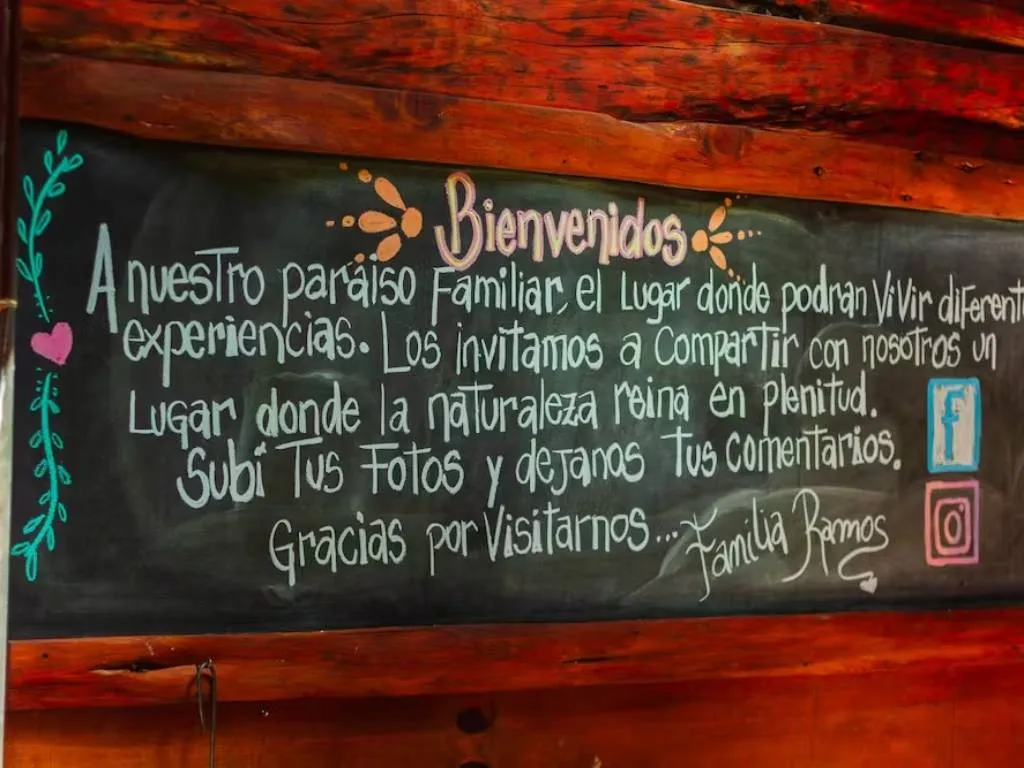 Bienvenidos
A nuestro paraiso Familiar, el Lugar donde podran ViVir diFerent
experiencias. Los invitamos a Compartir con nosotros un
Lugar donde la naturaleza reina en plenitud.
Subí Tus Fotos y dejanos Tus comentarios.
Gracias por Visitarnos... Familia Ramos
f